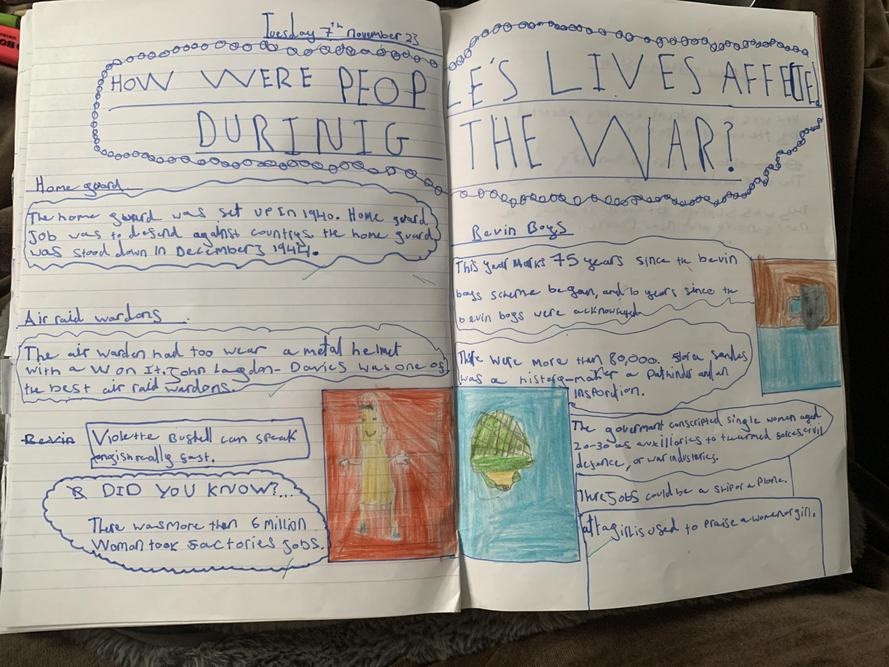 Tuesday 7th November 23
HOW WERE PEOPLE'S LIVES AFFECTED
DURINIG THE WAR?
Home guard
The home guard was set up In 1940. Home guard
Job was to defend against countrys the home guard
was stood down in December 3 1944.
Air raid wardons
The air warden had too wear a metal helmet
with a W on It. John Langdon-Davies was one of
the best air raid wardons.
Bevin
Violette Bustell can speak
english really fast.
DID YOU KNOW?...
There was more than 6 million
Woman took factories jobs.
Bevin Boys
This year Marks 75 years since the bevin
boys scheme began, and 10 years since the
bevin boys were acknowsed
There were more than 80,000. Flora sandes
was a history-maker a Pathinder and an
Insportion.
The goverment conscripted single women aged
20-30 as auxillories to the armed forces, civil
defence, or war industories.
There Jobs could be a ship or a Plane.
attagirl is used to praise a women or girl.